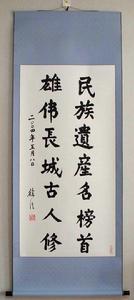 民族遺產名榜首
雄偉長城古人修
二〇〇四年三月八日